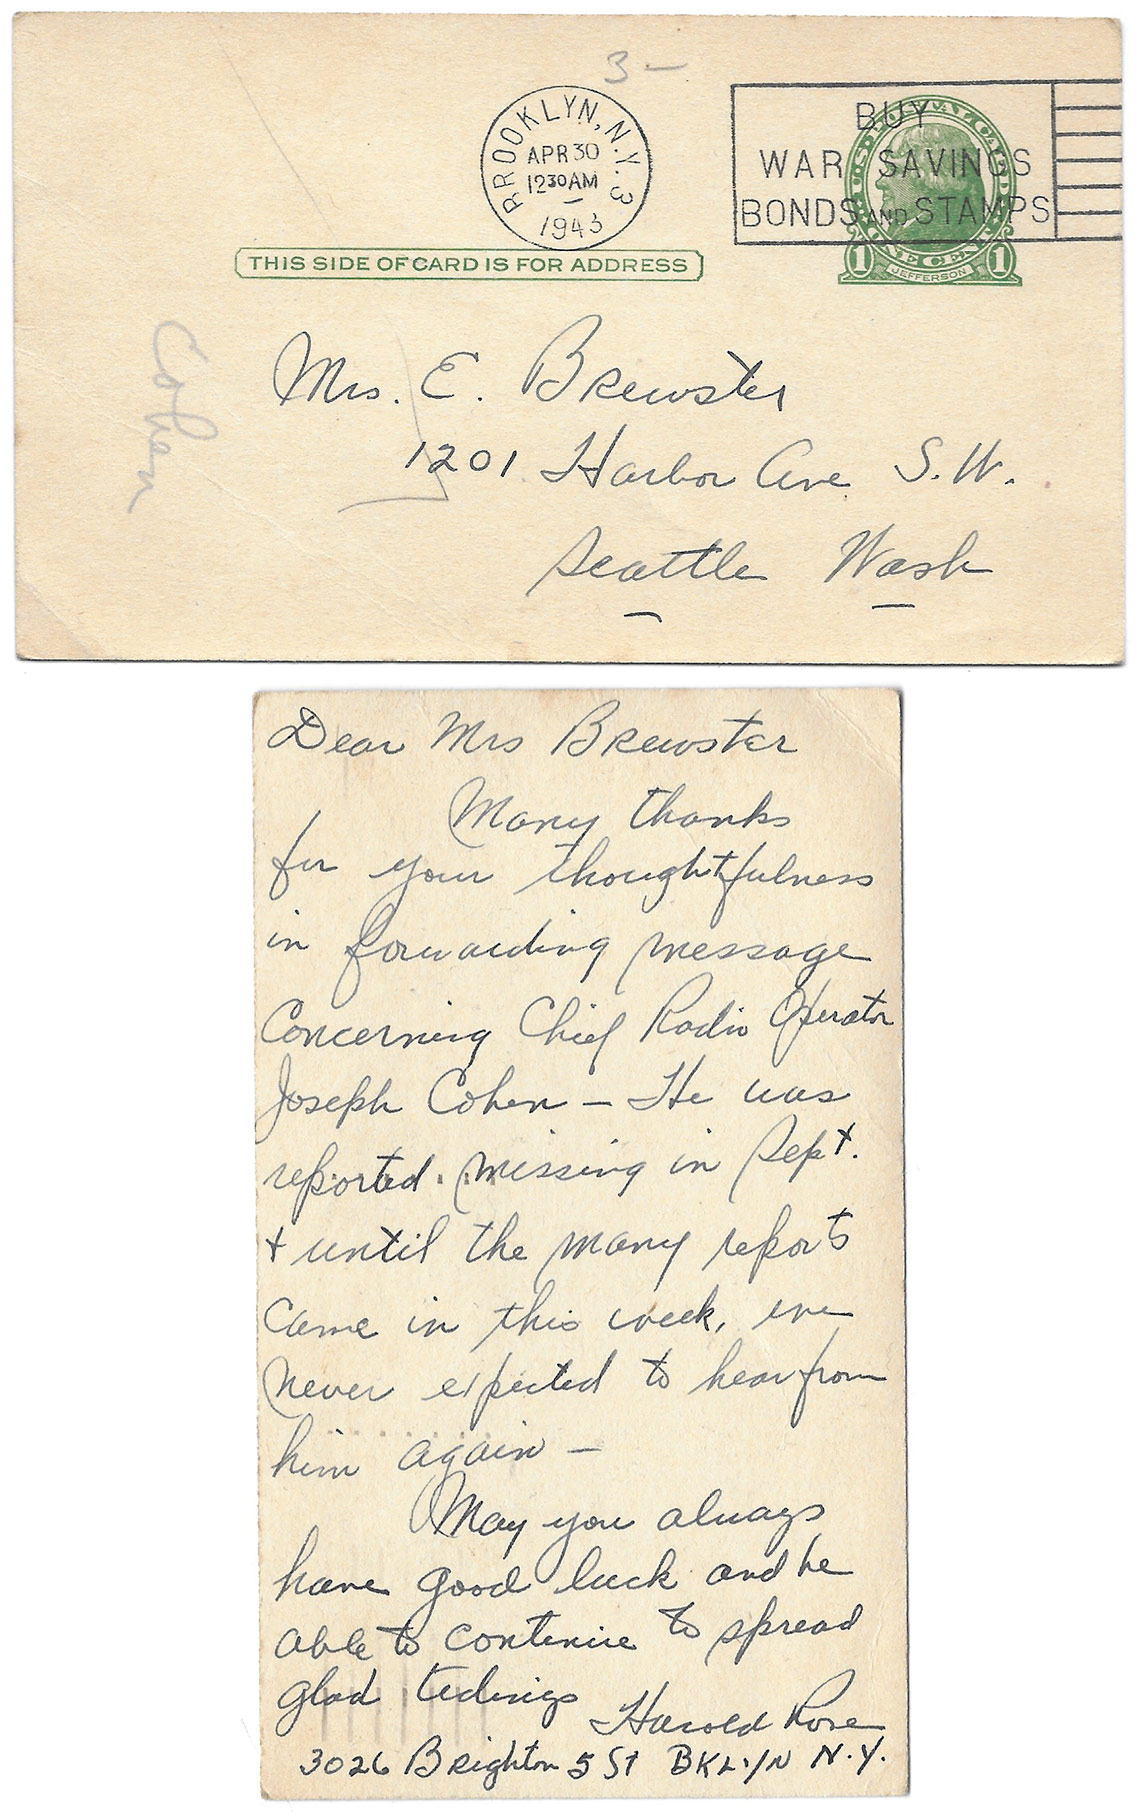 3 —
BROOKLYN, N.Y. 3
APR 30
12 30 AM
1943
BUY
WAR SAVINGS
BONDS AND STAMPS
THIS SIDE OF CARD IS FOR ADDRESS
U.S. POSTAL CARD
ONE CENT
1 JEFFERSON 1
Cohen
Mrs. E. Brewster
1201 Harbor Ave S.W.
Seattle Wash
Dear Mrs Brewster
Many thanks
for your thoughtfulness
in forwarding message
Concerning Chief Radio Operator
Joseph Cohen — He was
reported missing in Sept.
+ until the many reports
came in this week, we
never expected to hear from
him again —
May you always
have good luck and be
able to continue to spread
glad tidings
Harold Rose
3026 Brighton 5 St BKLYN N.Y.